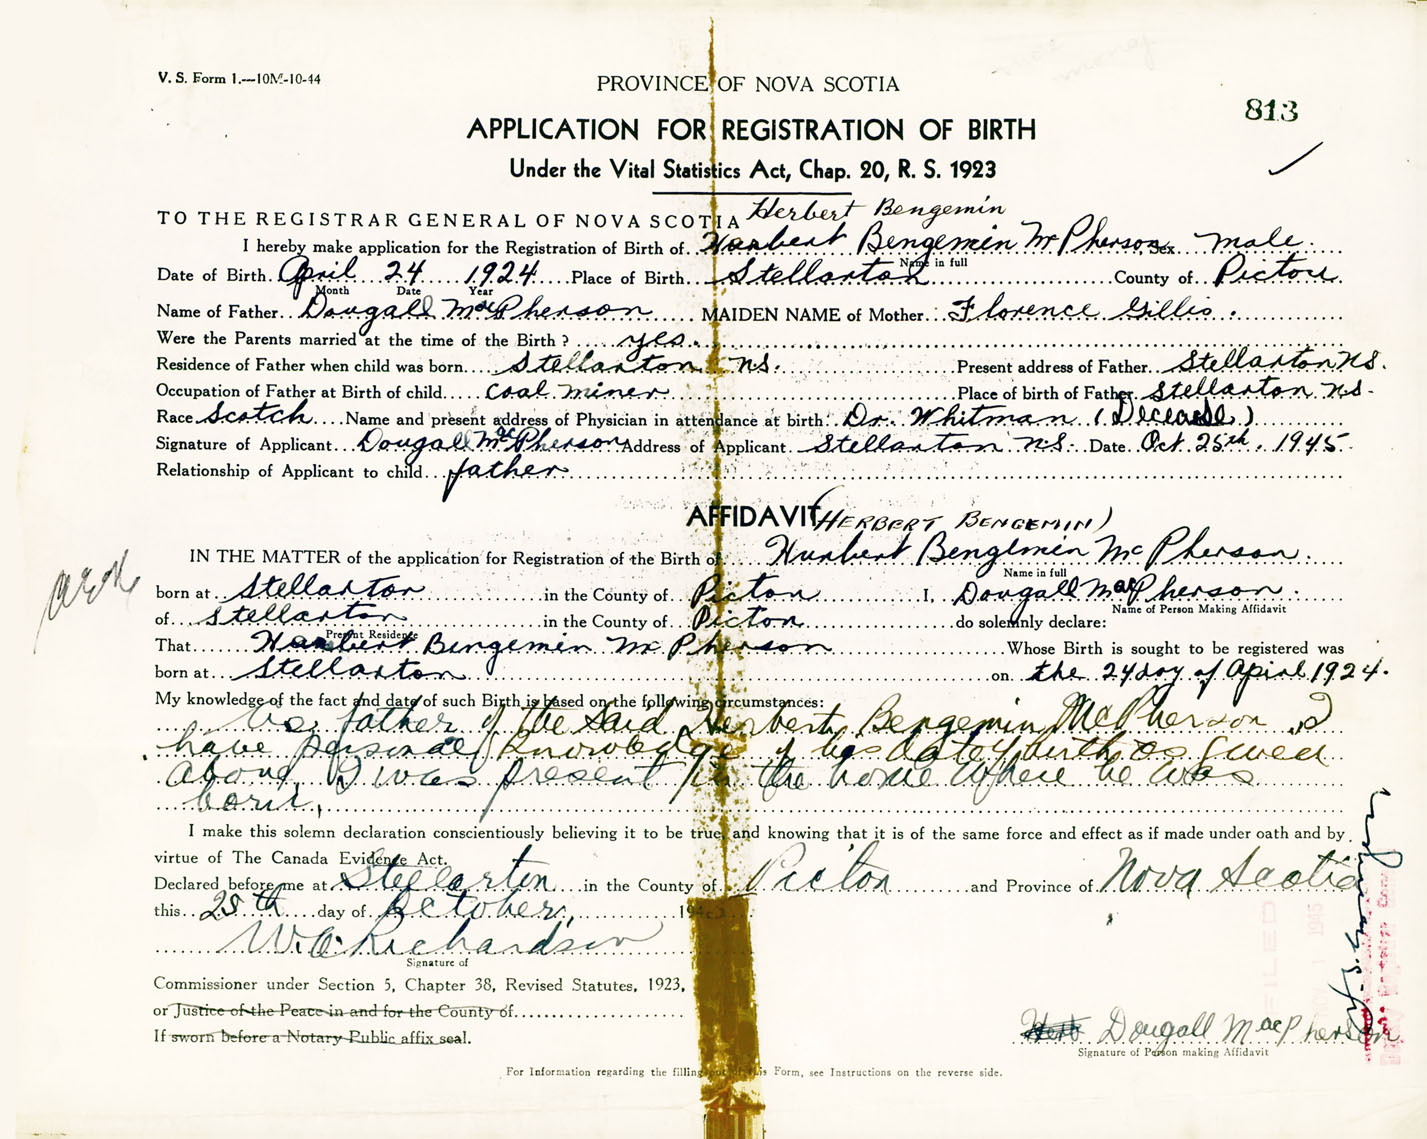 V. S. Form 1.—10M-10-44
PROVINCE OF NOVA SCOTIA
813
APPLICATION FOR REGISTRATION OF BIRTH
Under the Vital Statistics Act, Chap. 20, R. S. 1923
Herbert Bengemin
TO THE REGISTRAR GENERAL OF NOVA SCOTIA
I hereby make application for the Registration of Birth of Hurbert Bengemin McPherson Sex male
Name in full
Date of Birth April 24 1924 Place of Birth Stellarton County of Pictou
Month Date Year
Name of Father Dougall MacPherson MAIDEN NAME of Mother Florence Gillis.
Were the Parents married at the time of the Birth? yes.
Residence of Father when child was born Stellarton N.S. Present address of Father Stellarton N.S.
Occupation of Father at Birth of child coal miner Place of birth of Father Stellarton N.S.
Race Scotch Name and present address of Physician in attendance at birth Dr. Whitman (Decease)
Signature of Applicant Dougall MacPherson Address of Applicant Stellarton N.S. Date Oct 25th, 1945
Relationship of Applicant to child father
AFFIDAVIT (HERBERT BENGEMIN)
IN THE MATTER of the application for Registration of the Birth of Hurbert Bengemin McPherson.
Name in full
born at Stellarton in the County of Picton I, Dougall MacPherson.
Name of Person Making Affidavit
of Stellarton in the County of Picton do solemnly declare:
Present Residence
That Hurbert Bengemin McPherson Whose Birth is sought to be registered was
born at Stellarton on the 24 day of April 1924.
My knowledge of the fact and date of such Birth is based on the following circumstances:
As father of the said Herbert Bengemin McPherson, I
have personal knowledge of his date of birth as given
above. I was present in the home where he was
born.
I make this solemn declaration conscientiously believing it to be true, and knowing that it is of the same force and effect as if made under oath and by
virtue of The Canada Evidence Act.
Declared before me at Stellarton in the County of Picton and Province of Nova Scotia
this 25th day of October, 194
W. O. Richardson
Signature of
Commissioner under Section 5, Chapter 38, Revised Statutes, 1923,
or Justice of the Peace in and for the County of
If sworn before a Notary Public affix seal.
Herb Dougall MacPherson
Signature of Person making Affidavit
For Information regarding the filling out of this Form, see Instructions on the reverse side.
FILED
NOV 1 1945